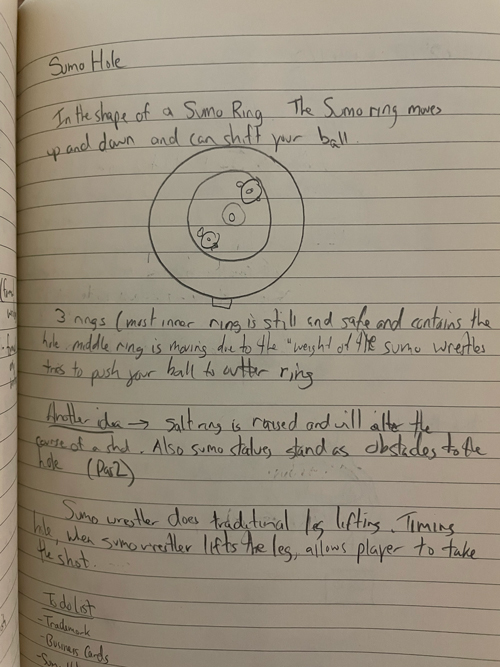 Sumo Hole
In the shape of a Sumo Ring The Sumo ring moves
up and down and can shift your ball.
3 rings (most inner ring is still and safe and contains the
hole. middle ring is moving due to the "weight of the sumo wrestles
tries to push your ball to outter ring
Another idea → Salt ring is raised and will alter the
course of a shot. Also sumo statues stand as obstacles to the
hole (Par 2)
Sumo wrestler does traditional leg lifting. Timing
hole, when sumo wrestler lifts the leg, allows player to take
the shot.
To do list
- Trademark
- Business Cards